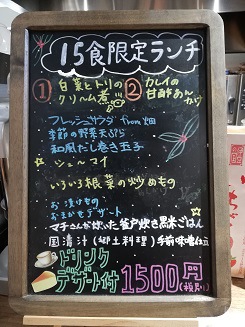 15食限定ランチ
① 白菜とトリのクリーム煮
② カレイの甘酢あんかけ
フレッシュサラダ from畑
季節の野菜天ぷら
和風だし巻き玉子
シューマイ
いろいろ根菜の炒めもの
お漬けもの
おまかせデザート
マチさんが炊いた釜戸炊き黒米ごはん
国清汁(郷土料理)手前味噌仕立
ドリンク
デザート付 1500円
(税別)